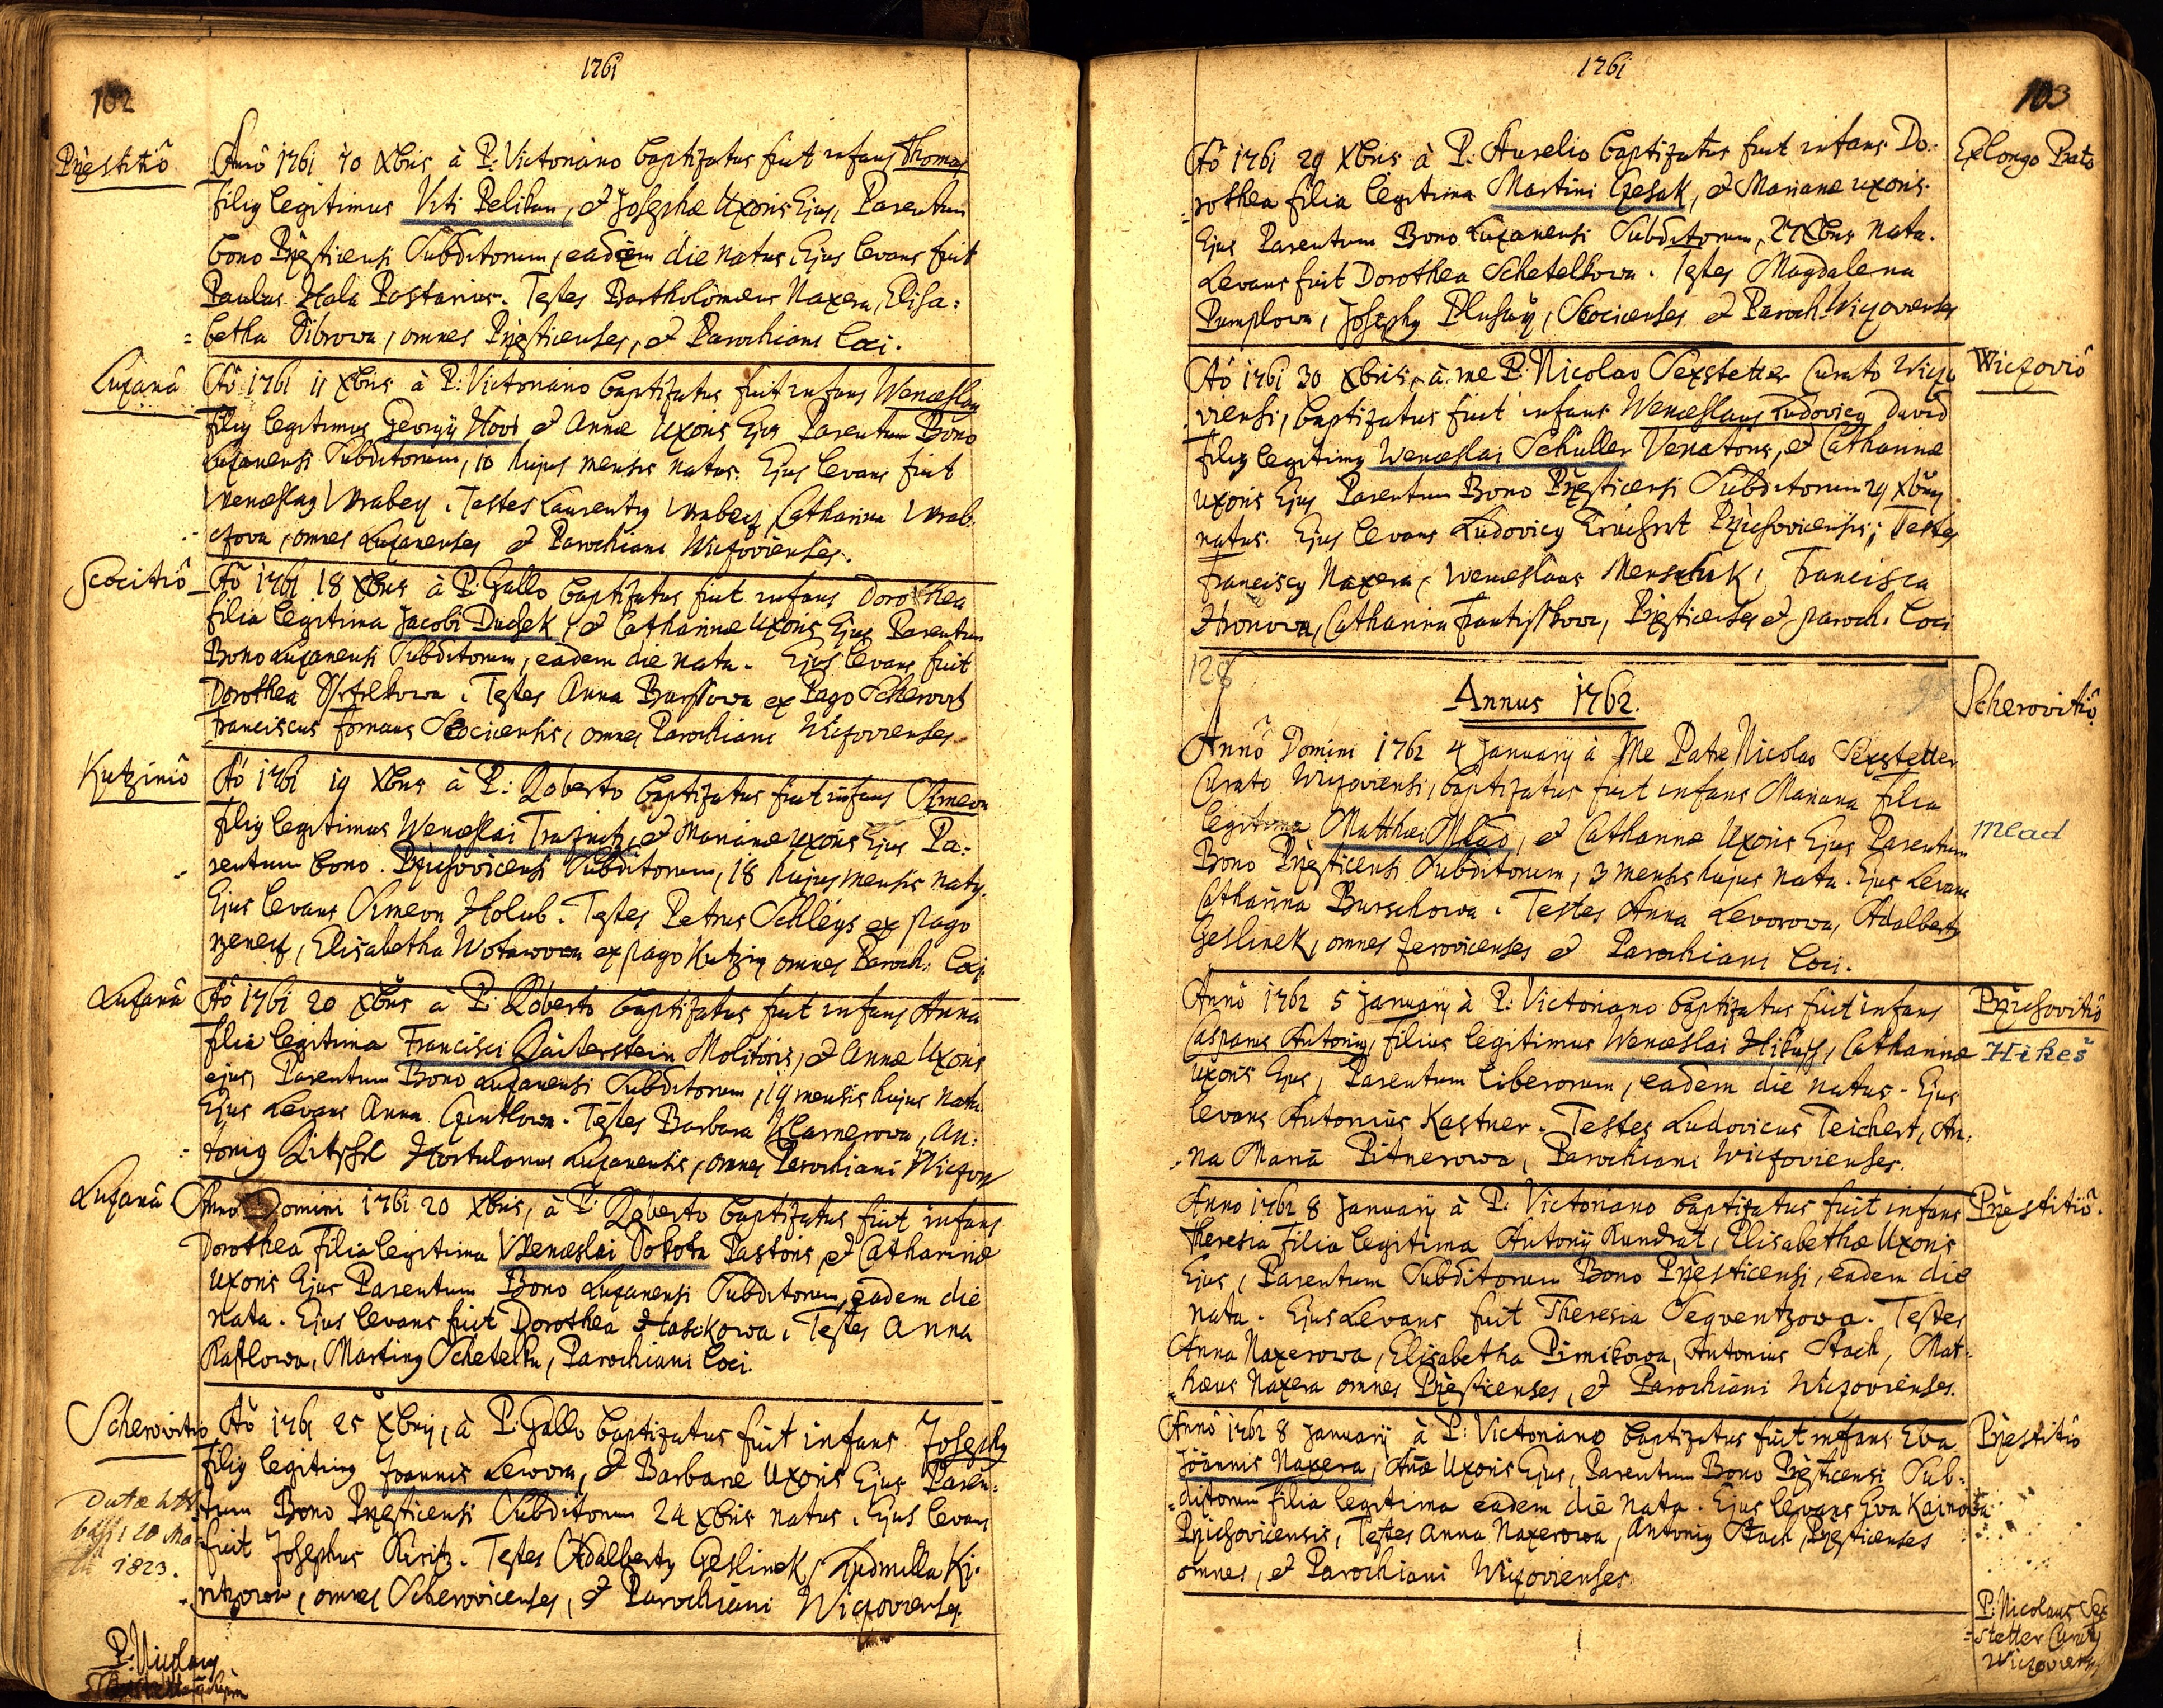 1761
102
Prżestitiô
Anno 1761 10 Xbris à P: Victoriano baptizatus fuit infans Thomas
filiq legitimus Viti Pelikan, et Josephæ Uxoris Ejus, Parentum
bono Prżesticensi Subditorum, eadem die natus, Ejus levans fuit
Paulus Hala Postarius. Testes Bartholomæus Naxera, Elisa=
=betha Sibrowa, omnes Prżesticenses, et Parochiani loci.
Luzanâ
Aô 1761 11 Xbris à P: Victoriano baptizatus fuit infans Wenceslaq
filiq legitimus Georgij Hovt et Annæ Uxoris Ejus Parentum Bono
Luzanensi Subditorum, 10 hujus mensis natus. Ejus levans fuit
Wenceslaq Wrabeq. Testes Laurentiq Wrabeq, Catharina Wrab
czowa, omnes Luzanenses et Parochiani Wiczovienses.
Scocitiô
Aô 1761 18 Xbris à P: Gallo baptizatus fuit infans Dorothea
filia legitima Jacobi Duchek, et Catharinæ Uxoris Ejus Parentum
Bono Luzanensi Subditorum, eadem die nata. Ejus levans fuit
Dorothea. Testes Anna Burssowa ex Pago Scherowit
Franciscus Formans Scocicensis, omnes Parochiani Wiczovienses
Kutziniô
Aô 1761 19 Xbris à P: Roberto baptizatus fuit infans Simeon
filiq legitimus Wenceslai Trasnitz, et Marianæ uxoris Ejus Pa=
rentum bono Prżichovicensi Subditorum, 18 hujus mensis natq.
Ejus levans Simeon Holub. Testes Petrus Schlegs ex pago
Elisabetha Wotawowa ex pago Kutzin omnes Paroch: loci
Luzanâ
Aô 1761 20 Xbris à P: Roberto baptizatus fuit infans Anna
filia legitima Francisci Molitoris, et Annæ Uxoris
ejus, Parentum Bono Luzanensi Subditorum, 19 mensis hujus nata
Ejus Levans Anna. Testes Barbara, An=
=toniq Hortulanus Luzanensis, omnes Parochiani Wiczov
Luzanâ
Anno Domini 1761 20 Xbris, à P: Roberto baptizatus fuit infans
Dorothea filia legitima Wenceslai Sokota Pastoris, et Catharinæ
Uxoris Ejus Parentum Bono Luzanensi Subditorum, eadem die
nata. Ejus levans fuit Dorothea Hasikowa. Testes Anna
Raftlowa, Martinq Schetelka, Parochiani loci.
Scherovitio
Aô 1761 25 Xbris, à P: Gallo baptizatus fuit infans Josephq
filiq legitimq Joannis Lewora, et Barbaræ Uxoris Ejus Paren=
tum Bono Prżesticensi Subditorum 24 Xbris natus. Ejus levans
fuit Josephus Kiritz. Testes Adalbertq Czeslinek, Ludmilla Ki=
ritzowa, omnes Scherovicenses, et Parochiani Wiczovienses.
20
1823.
P: Nicolaus
1761
103
Aô 1761 29 Xbris à P. Aurelio baptizatus fuit infans Do=
=rothea filia legitima Martini Czesak, et Marianæ uxoris
Ejus Parentum Bono Luzanensi Subditorum, 27 Xbris nata.
Levans fuit Dorothea Schetelkowa. Testes Magdalena
Pumplowa, Josephq, Scocicenses et Paroch. Wiczovienses
Ex longo Prato
Aô 1761 30 Xbris, à me P. Nicolao Sexstetter Curato Wiczo
viensi, baptizatus fuit infans Wenceslaus Ludovicq David
filiq legitimq Wenceslai Schuller Venatoris, et Catharinæ
uxoris Ejus Parentum Bono Prżesticensi Subditorum 29 Xbris
natus. Ejus levans Ludovicq Prżichovicensis; Testes
Franciscq Naxera, Wenceslaus Menschik, Francisca
Hronowa, Catharina Frantisskowa, Prżesticenses et paroch. loci
Wiczoviô
128
Annus 1762.
Scherovitiô
Annô Domini 1762 4 Januarij à Me Patre Nicolao Sexstetter
Curato Wiczoviensi, baptizatus fuit infans Mariana filia
legitima Matthæi Mlad, et Catharinæ Uxoris Ejus Parentum
Bono Prżesticensi Subditorum, 3 mensis hujus nata. Ejus Levans
Catharina Burschowa. Testes Anna Levorowa, Adalbertq
Czeslinek, omnes Zerovicenses et Parochiani loci.
Mlad
Annô 1762 5 Januarij à P: Victoriano baptizatus fuit infans
Casparus Antoniq, filius legitimus Wenceslai Hikuss, Catharinæ
uxoris Ejus, Parentum liberorum, eadem die natus. Ejus
levans Antonius Kastner. Testes Ludovicus Teichert, An=
=na Maria Pitnerowa, Parochiani Wiczovienses.
Prżichovitiô
Hikeš
Anno 1762 8 Januarij à P. Victoriano baptizatus fuit infans
Theresia filia legitima Antonij Kundrat, Elisabethæ Uxoris
Ejus, Parentum Subditorum Bono Prżesticensi, eadem die
nata. Ejus Levans fuit Theresia Seqventzowa. Testes
Anna Naxerowa, Elisabetha Pimikowa, Antonius Stach, Mat=
=hæus Naxera omnes Prżesticenses, et Parochiani Wiczovienses.
Prżestitiô.
Annô 1762 8 Januarij à P: Victoriano baptizatus fuit infans Eva
Joannis Naxera, Annæ Uxoris Ejus, Parentum Bono Prżesticensi Sub=
=ditorum filia legitima eadem die nata. Ejus levans Eva Kainowa
Prżichovicensis, Testes Anna Naxerowa, Antoniq Stach, Prżesticenses
omnes, et Parochiani Wiczovienses.
Prżestitiô
P: Nicolaus Sex
=stetter Curatq
Wiczoviens